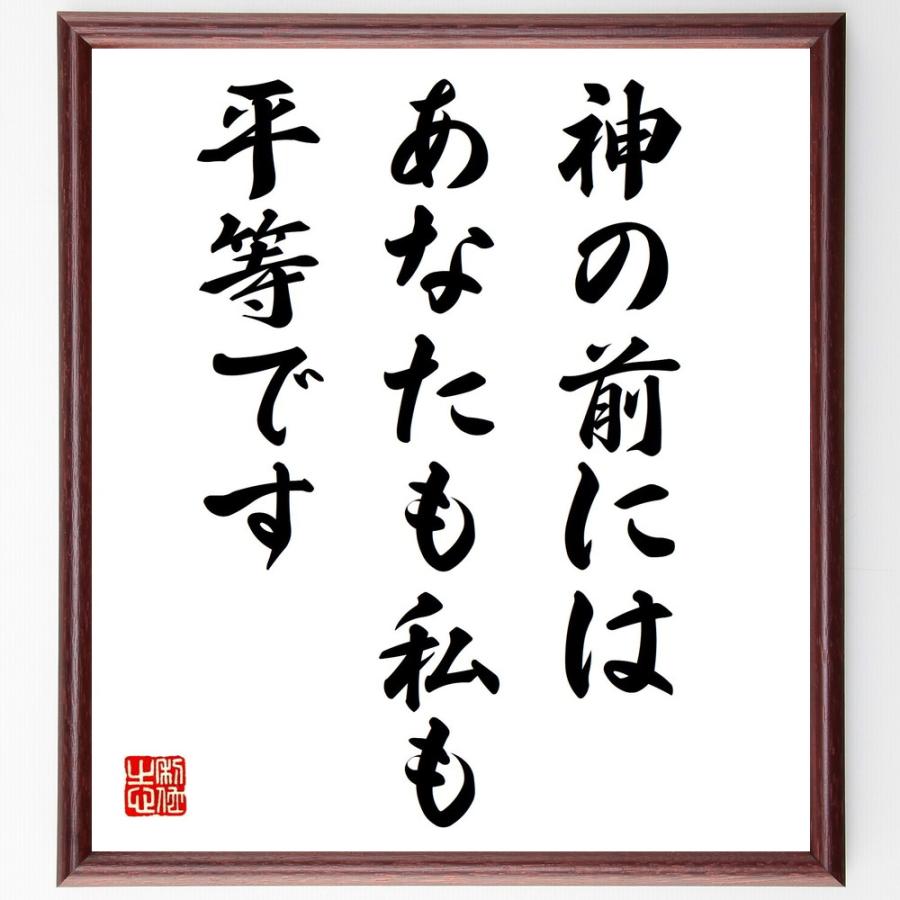 神の前には
あなたも私も
平等です